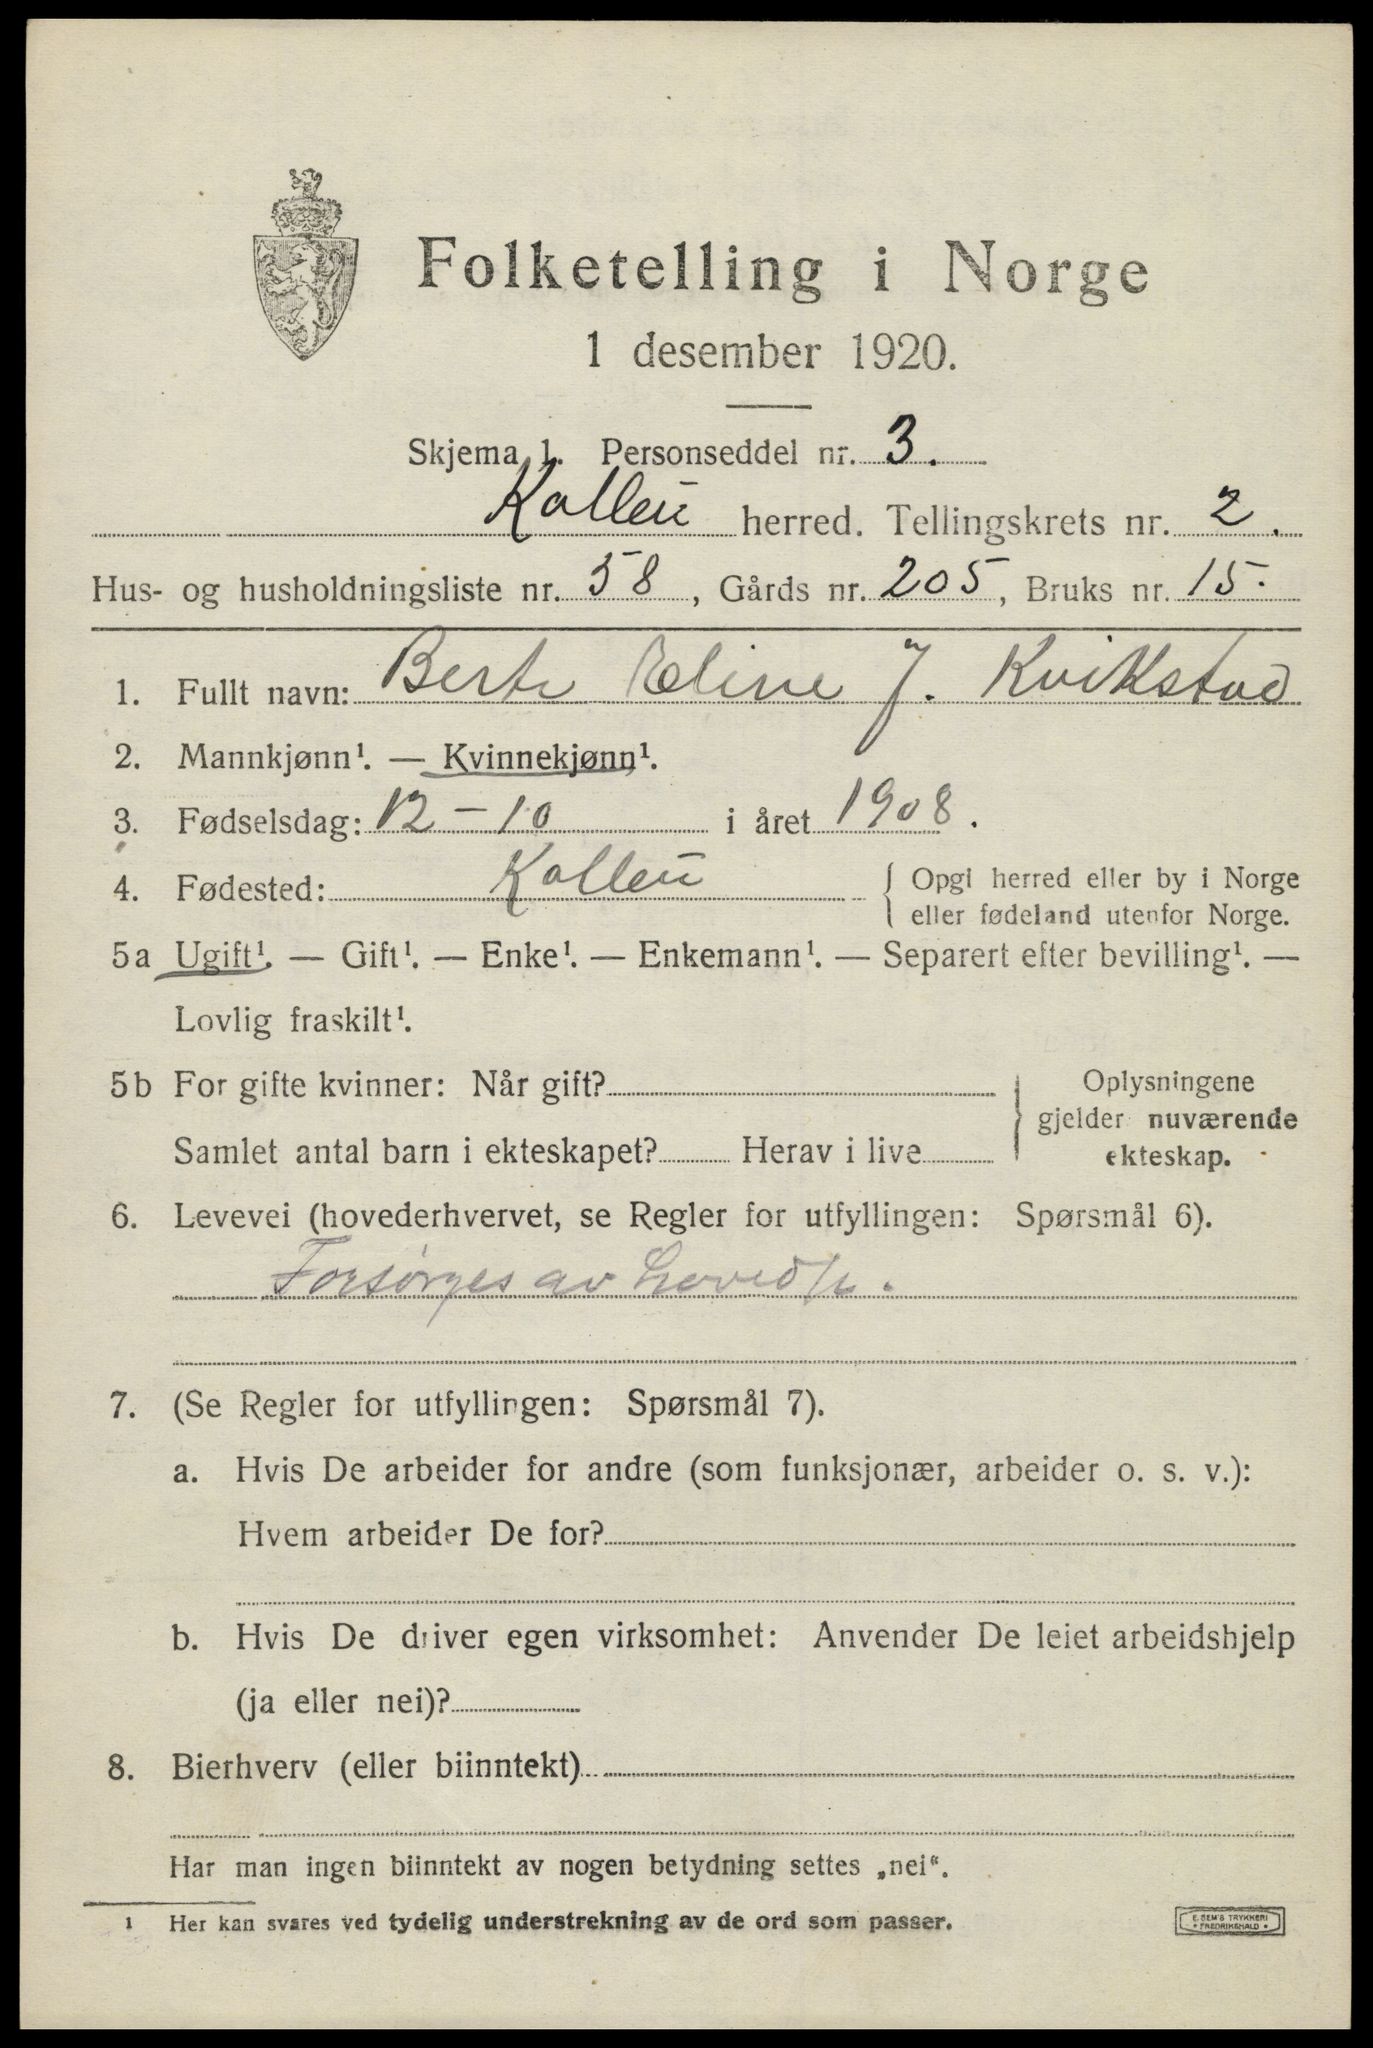 Folketelling i Norge
1 desember 1920.
Skjema 1. Personseddel nr. 3.
Kolbu herred. Tellingskrets nr. 2.
Hus- og husholdningsliste nr. 58, Gårds nr. 205, Bruks nr. 15.
1. Fullt navn: Berte Eline J. Kvikstad
2. Mannkjønn¹. — Kvinnekjønn¹.
3. Fødselsdag: 12-10 i året 1908.
4. Fødested: Kolbu { Opgi herred eller by i Norge
eller fødeland utenfor Norge.
5a Ugift¹. — Gift¹. — Enke¹. — Enkemann¹. — Separert efter bevilling¹. —
Lovlig fraskilt¹.
5b For gifte kvinner: Når gift? } Oplysningene
gjelder nuværende
Samlet antal barn i ekteskapet? Herav i live ekteskap.
6. Levevei (hovederhvervet, se Regler for utfyllingen: Spørsmål 6).
Forsørges av hovedp.
7. (Se Regler for utfyllingen: Spørsmål 7).
a. Hvis De arbeider for andre (som funksjonær, arbeider o. s. v.):
Hvem arbeider De for?
b. Hvis De driver egen virksomhet: Anvender De leiet arbeidshjelp
(ja eller nei)?
8. Bierhverv (eller biinntekt)
Har man ingen biinntekt av nogen betydning settes „nei“.
1 Her kan svares ved tydelig understrekning av de ord som passer.
E. SEM'S TRYKKERI
• FREDRIKSHALD •